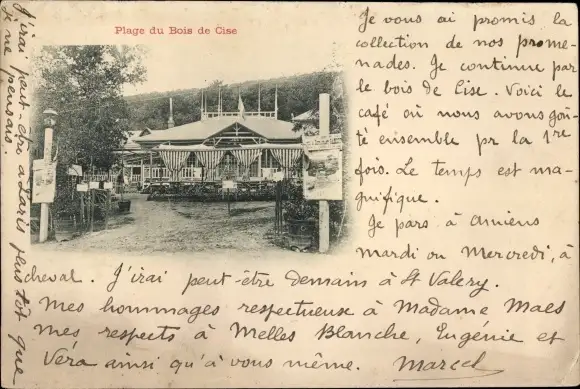 Plage du Bois de Cise
Je vous ai promis la
collection de nos prome-
nades. Je continue par
le bois de Cise. Voici le
café où nous avons goû-
té ensemble pr la 1re
fois. Le temps est ma-
gnifique.
Je pars à Amiens
mardi ou Mercredi, à
cheval. J'irai peut-être demain à St Valery.
Mes hommages respectueux à Madame Maes
mes respects à Melles Blanche, Eugénie et
Véra ainsi qu'à vous même. Marcel
J'irai peut-être à Paris plus tôt que
je ne pensais.